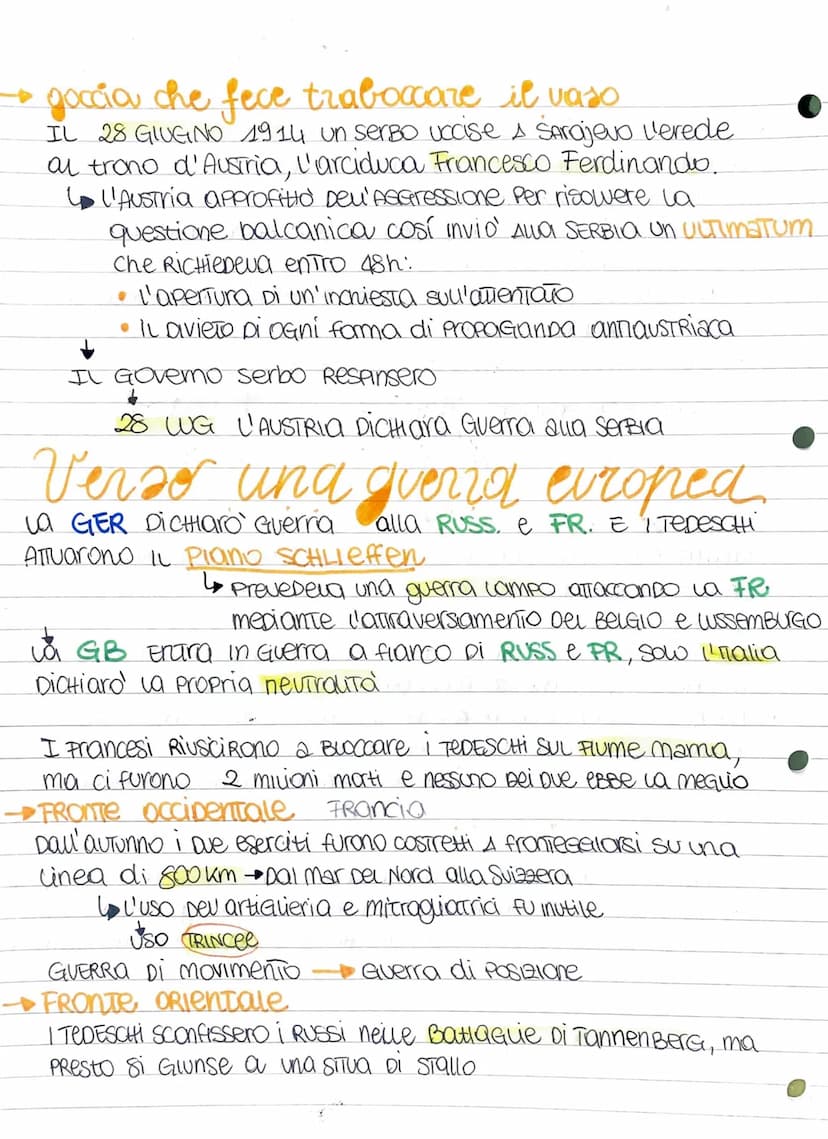 → goccia che fece traboccare il vaso
IL 28 GIUGNO 1914 un serbo uccise a Sarajevo l'erede
al trono d'Austria, l'arciduca Francesco Ferdinando.
↳ L'Austria approfittò dell'aggressione per risolvere la
questione balcanica così inviò alla Serbia un ULTIMATUM
che richiedeva entro 48h:
• L'apertura di un'inchiesta sull'attentato
• Il divieto di ogni forma di propaganda antiaustriaca
↓
Il Governo serbo respinsero
↓
28 LUG L'Austria dichiara guerra alla Serbia
Verso una guerra europea
La GER dichiarò guerra alla RUSS. e FR. E i tedeschi
attuarono il PIANO SCHLIEFFEN
↳ Prevedeva una guerra lampo attaccando la FR.
mediante l'attraversamento del Belgio e Lussemburgo
↓
La GB entra in guerra a fianco di RUSS e FR, solo l'Italia
dichiarò la propria neutralità
I francesi riuscirono a bloccare i tedeschi sul fiume mama,
ma ci furono 2 milioni morti e nessuno dei due ebbe la meglio
→ FRONTE OCCIDENTALE Francia
Dall'autunno i due eserciti furono costretti a fronteggiarsi su una
linea di 800 km → Dal mar del Nord alla Svizzera
↳ L'uso dell'artiglieria e mitragliatrici fu inutile
↓
uso TRINCEE
GUERRA DI MOVIMENTO → Guerra di posizione
→ FRONTE ORIENTALE
I tedeschi sconfissero i russi nelle Battaglie di Tannenberg, ma
presto si giunse a una situa di stallo